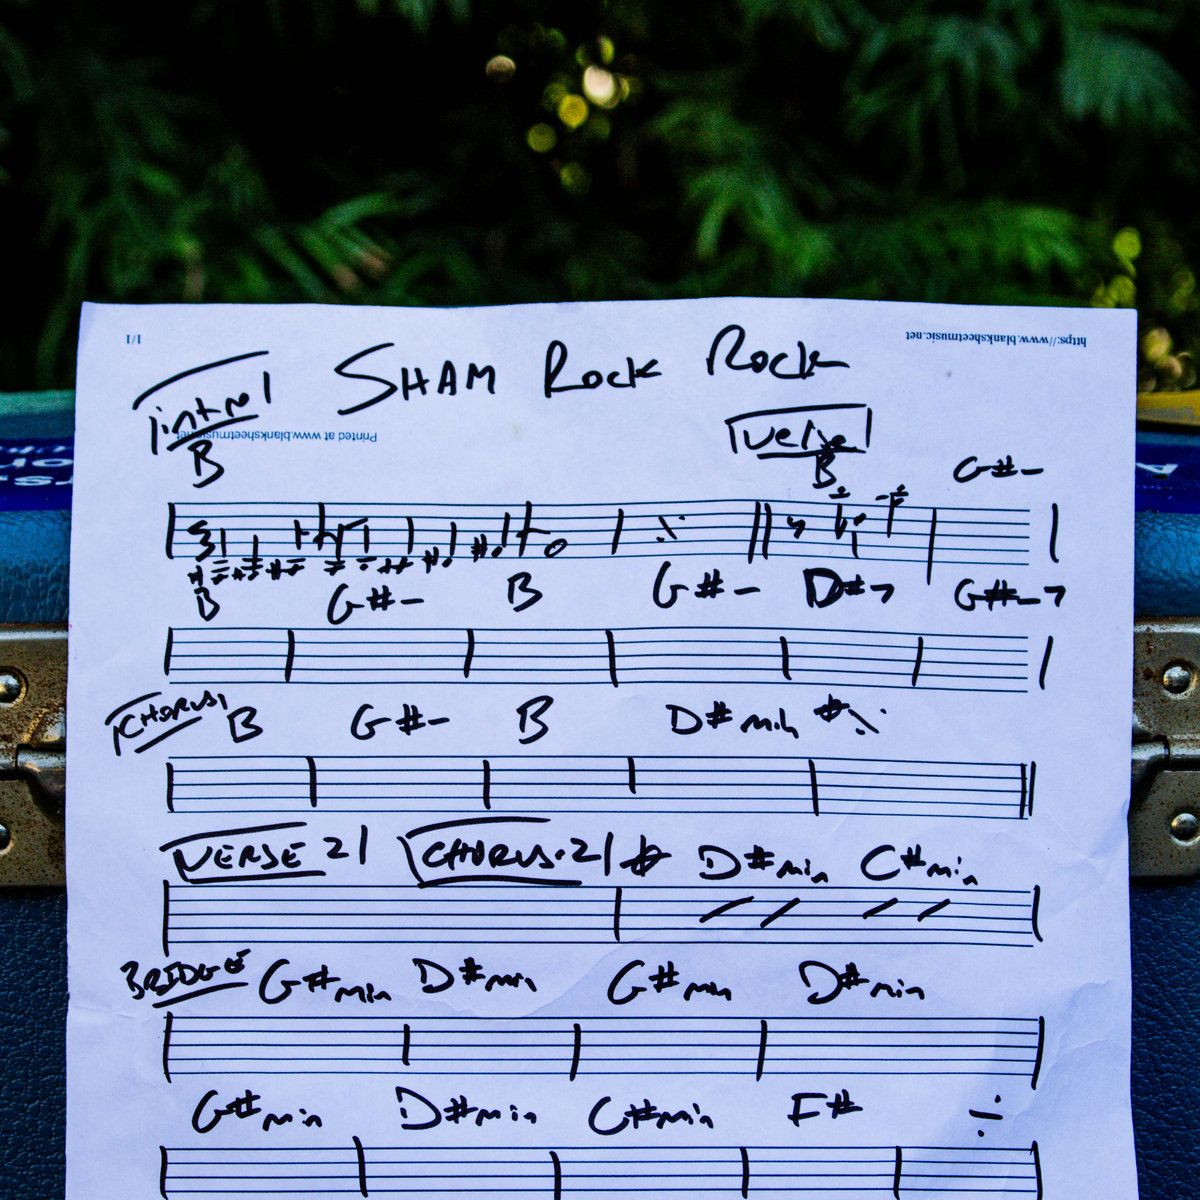 1/1 https://www.blanksheetmusic.net
SHAM Rock Rock
intro
Printed at www.blanksheetmusic.net
Verse
B B G#-
B G#- B G#- D#7 G#-7
CHORUS B G#- B D#min
VERSE 2 CHORUS 2 D#min C#min
BRIDGE G#min D#min G#min D#min
G#min D#min C#min F# ÷